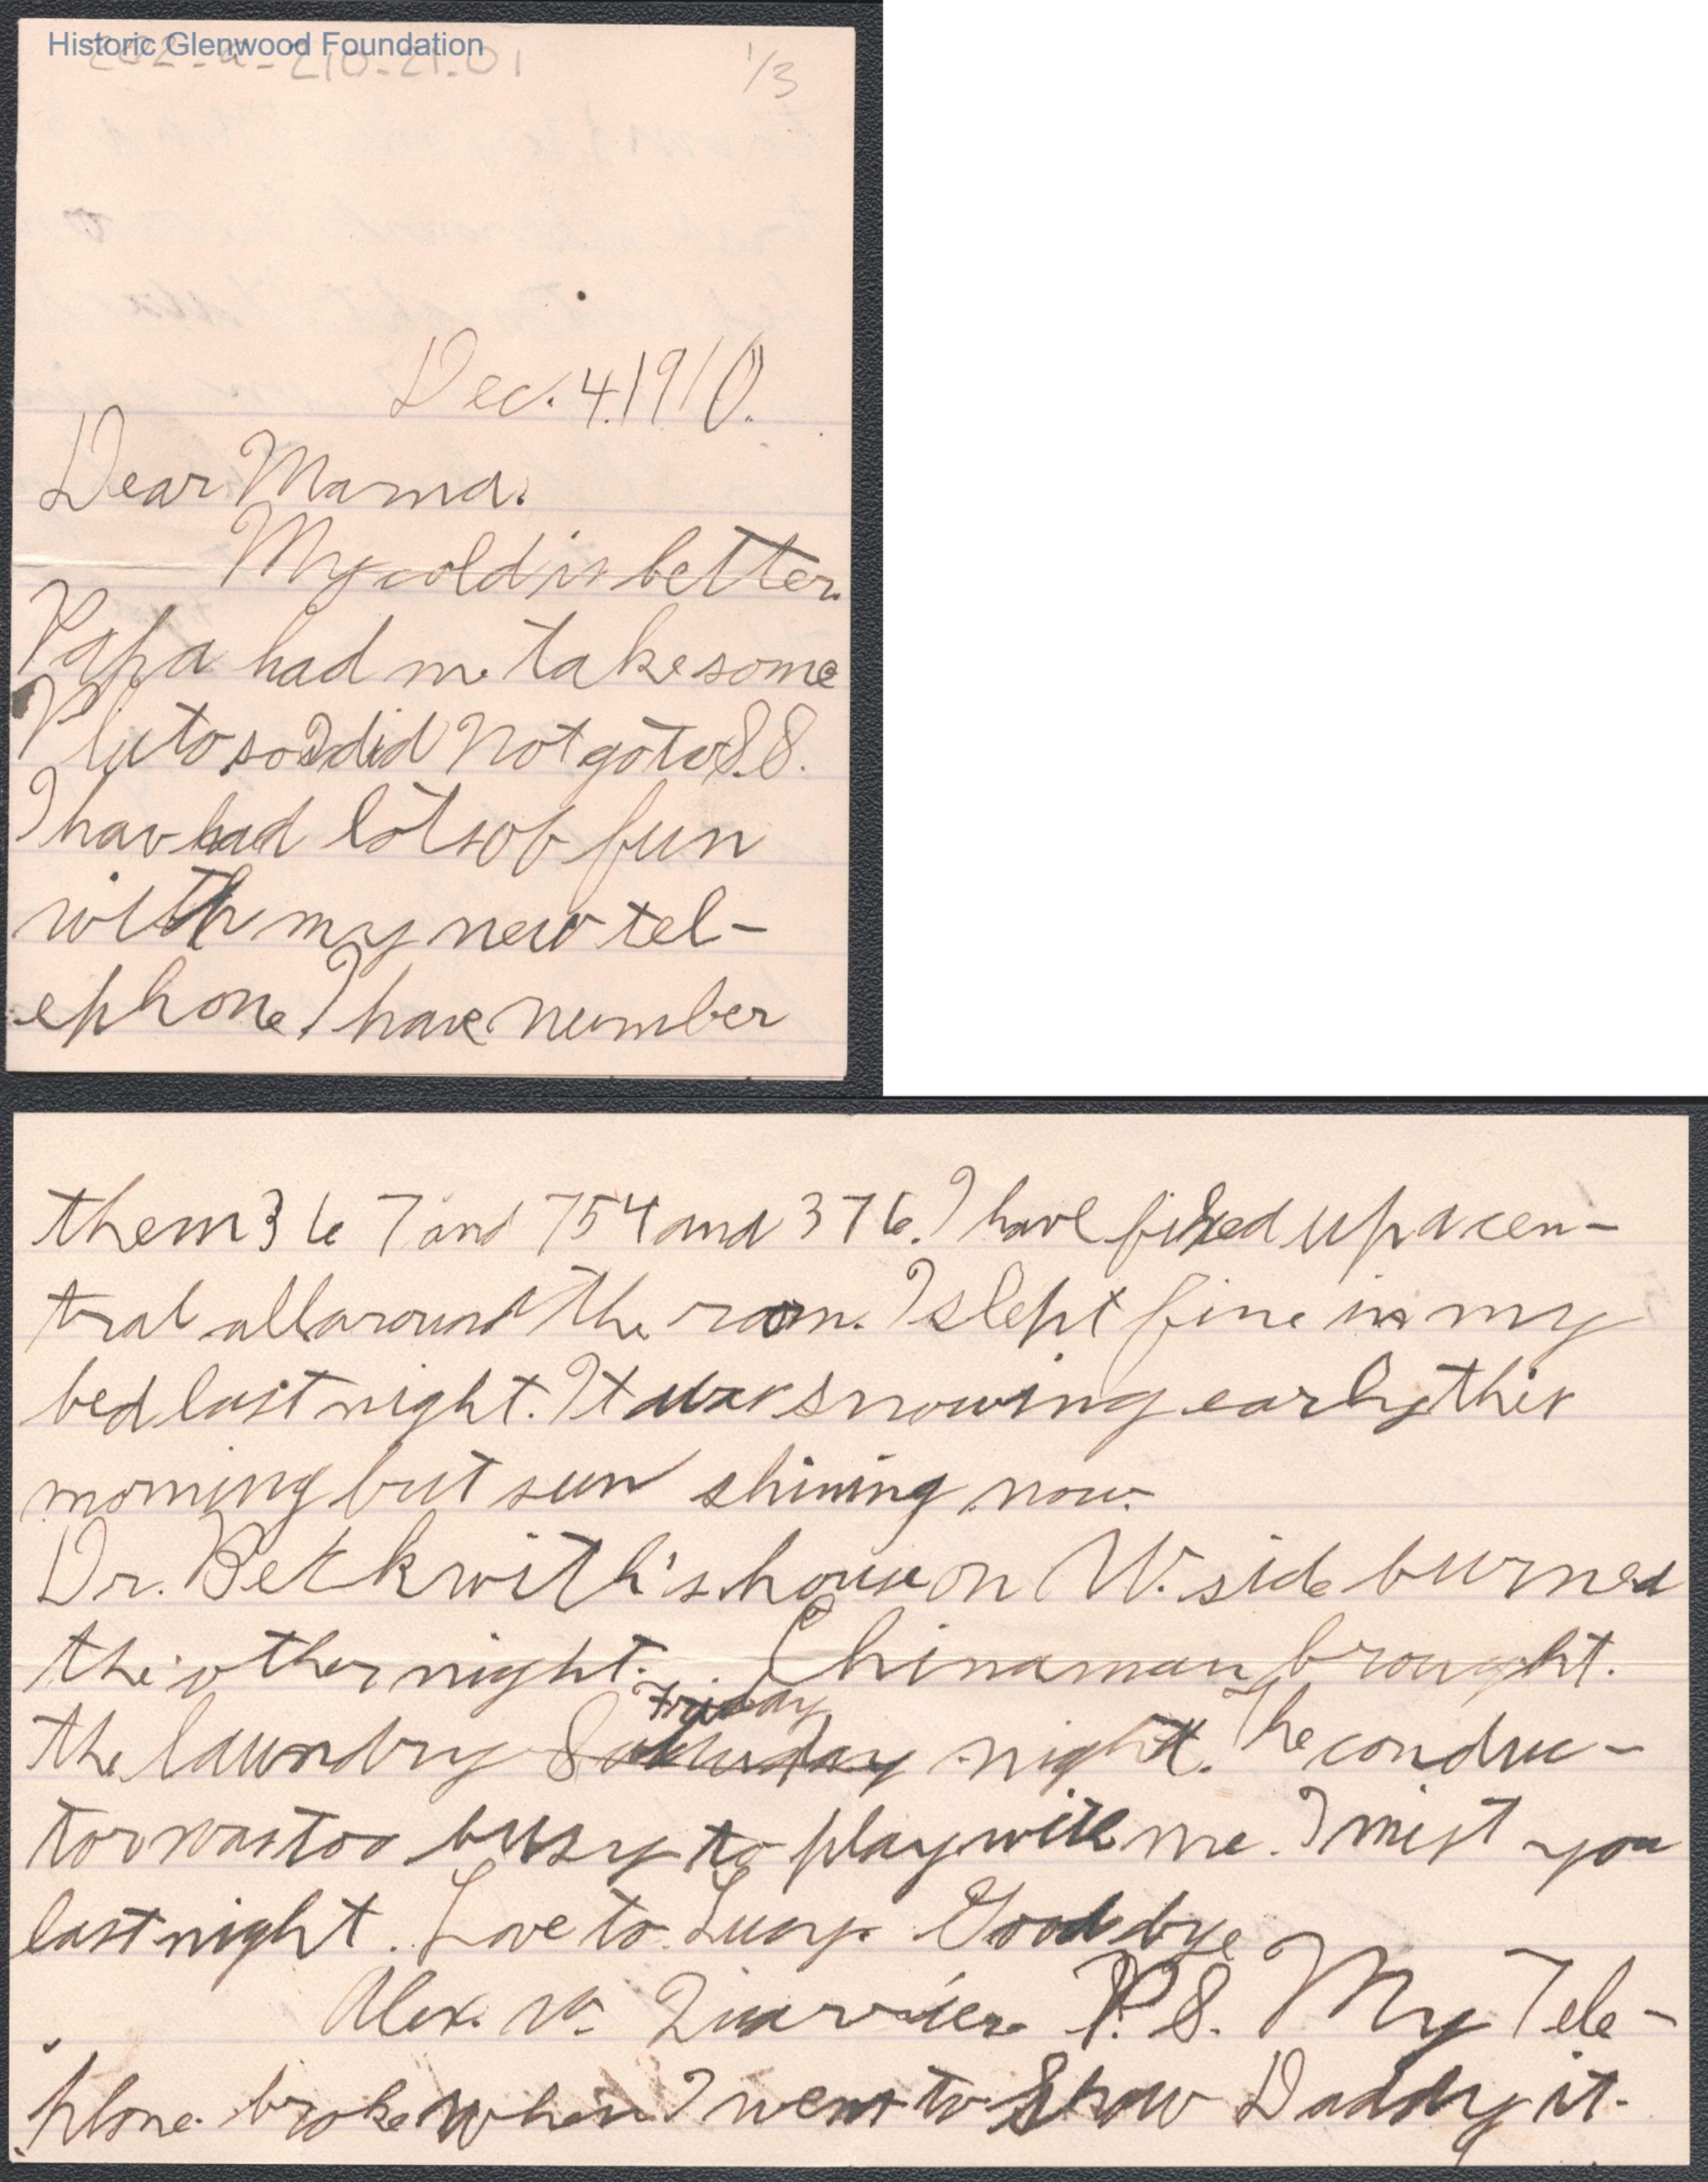 Historic Glenwood Foundation
202-a-210-21.01
1/3
Dec. 4. 1910.
Dear Mama.
My cold is better.
Papa had me take some
Pluto so I did Not go to S.S.
I hav had lots of fun
with my new tel-
ephone. I have number
them 3 6 7 and 754 and 376. I have fixed up a cen-
tral all around the room. I slept fine in my
bed last night. It was snowing early this
morning but sun shining now.
Dr. Beckwith's house on W. side burned
the other night. Chinaman brought.
Friday
the laundry Saturday night. The conduc-
tor was too busy to play with me. I mist you
last night. Love to Lucy. Good bye
Alex. W. P.S. My Tele-
phone broke when I went to Show Daddy it.